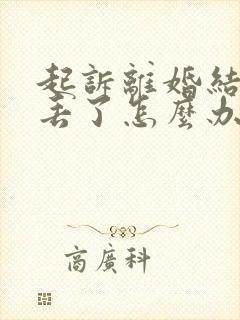 起訴離婚結
丟了怎麼办
商廣科